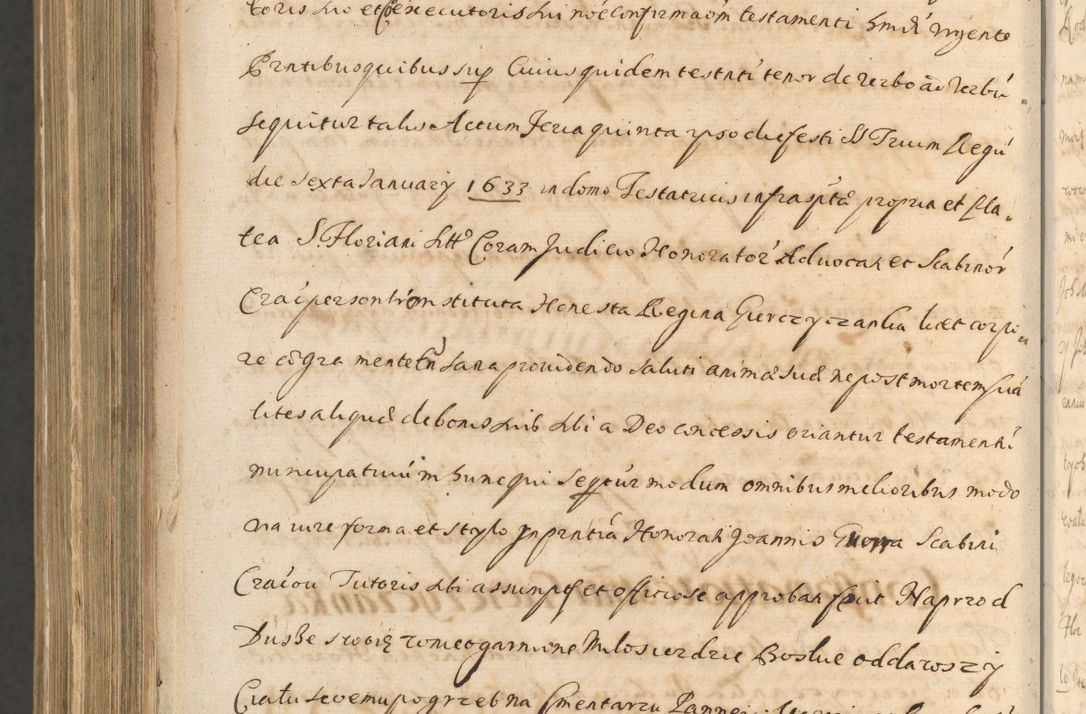 toris sui et executoris sui noe confirmaom testamenti hmdi vrgente
Prntibus quibus sup Cuius quidem testnti tenor de verbo ad Verbu
sequitur talis Actum feria quinta ipso die festi SS Trium Regu
die sexta January 1633 in domo Testatricis infrascptae propria et Pla-
tea S. Floriani sitto Coram Judicio Honorator Advocati et Scabinor
Crac personlr constituta Honesta Regina Gierczyczanka licet corpo
re aegra mente tn sana providendo saluti animae suae ne post mortem sua
lites aliquae de bonis suis sibi a Deo concessis oriantur testamenti
nuncupativum in hunc qui sequitur modum omnibus melioribus modo
via iure forma et stylo In prntia Honorati Joannis Scabini
Cracov Tutoris sibi assumpt et officiose approbati fecit Naprzod
Dusze swoię w nieogarnione Milosierdzie Boskie oddawszy
Ciału swemu pogrzeb na Cmentarzu Panney